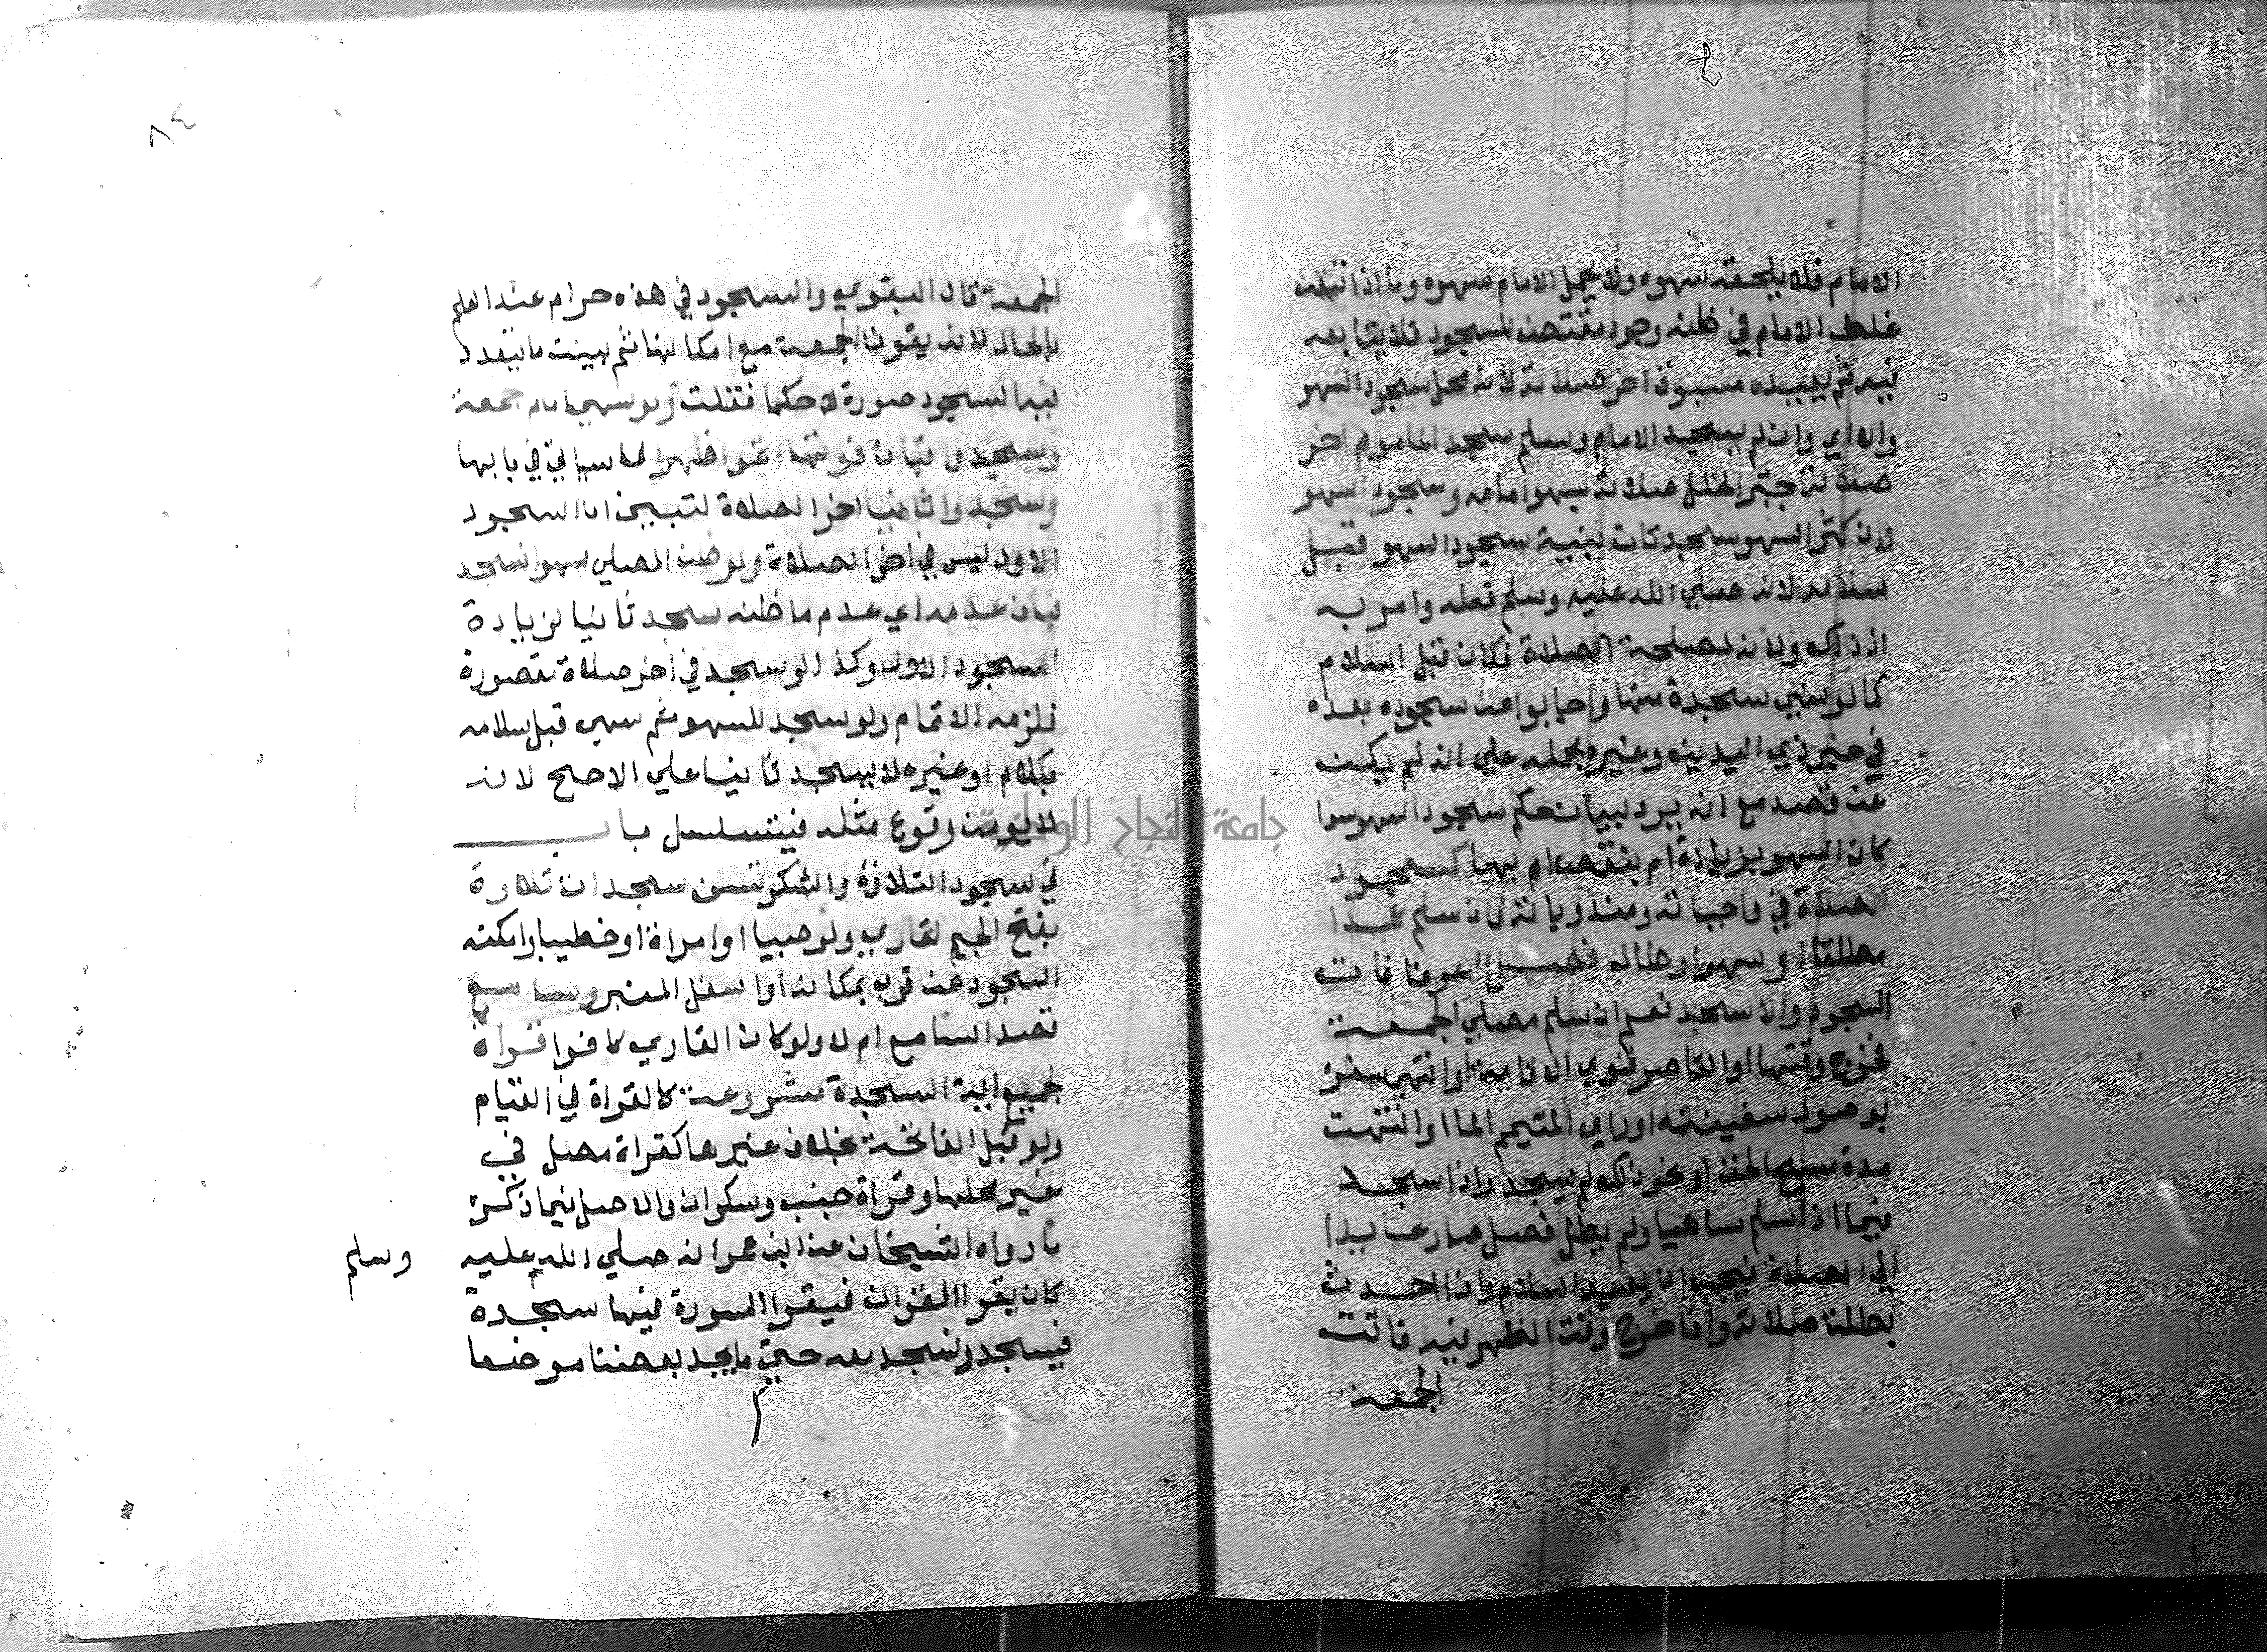 الامام فلا يلحقه سهوه ولا يحمل الامام سهوه وما اذا تيقن
غلط الامام في ظنه وجود مقتض للسجود فلا يتابعه
فيه ثم يعيده مسبوق اخر صلاته لانه محل سجود السهو
والا اي وان لم يسجد الامام وسلم سجد الماموم اخر
صلاته جبر الخلل صلاته بسهو امامه وسجود السهو
وان كثر السهو سجدتان بنية سجود السهو قبيل
سلامه لانه صلي الله عليه وسلم فعله وامر به
اذ ذاك ولانه لمصلحة الصلاة فكان قبل السلام
كما لو نسي سجدة منها واجابوا عن سجوده بعده
في خبر ذي اليدين وغيره بحمله علي انه لم يكن
عن قصد مع انه يرد لبيان حكم سجود السهو سوا
كان السهو بزيادة ام بنقص ام بهما كسجود
الصلاة في واجباته ومندوباته فان سلم عمدا
مطلقا او سهوا وطال فصل عرفا فات
السجود والا سجد نعم ان سلم مصلي الجمعة
فخرج وقتها او القاصر فنوي الاقامة او انتهي سفره
بوصول سفينته او راي المتيمم الما او انتهت
مدة مسح الخف او نحو ذلك لم يسجد واذا سجد
فيما اذا سلم ساهيا ولم يطل فصل صار عايدا
الي الصلاة فيجب ان يعيد السلام واذا احدث
بطلت صلاته واذا خرج وقت الظهر فيه فاتت
الجمعة
٨٤
الجمعة قال البغوي والسجود في هذه حرام عند العلم
بالحال لانه يفوت الجمعة مع امكانها ثم بينت ما يتعدد
فيه السجود صورة لا حكما فقلت ولو سهي امام جمعة
وسجدوا فبان فوتها اتموا ظهرا لما سياتي في بابها
وسجدوا ثانيا اخر الصلاة لتبين ان السجود
الاول ليس في اخر الصلاة ولو ظن المصلي سهوا فسجد
فبان عدمه اي عدم ما ظنه سجد ثانيا لزيادة
السجود الاول وكذا لو سجد في اخر صلاة مقصورة
فلزمه الاتمام ولو سجد للسهو ثم سهي قبل سلامه
بكلام او غيره لا يسجد ثانيا علي الاصح لانه
لا يومن وقوع مثله فيتسلسل باب
في سجود التلاوة والشكر تسن سجدات تلاوة
بفتح الجيم لقاري ولو صبيا او امراة او خطيبا وامكنه
السجود عن قرب بمكانه او اسفل المنبر وسامع
قصد السماع ام لا ولو كان القاري كافرا قراة
لجميع اية السجدة مشروعة كالقراة في القيام
ولو قبل الفاتحة بخلاف غيرها كقراة مصل في
غير محلها وقراة جنب وسكران والاصل فيما ذكر
ما رواه الشيخان عن ابن عمر انه صلي الله عليه وسلم
كان يقرا القران فيقرا السورة فيها سجدة
فيسجد ونسجد معه حتي ما يجد بعضنا موضعا